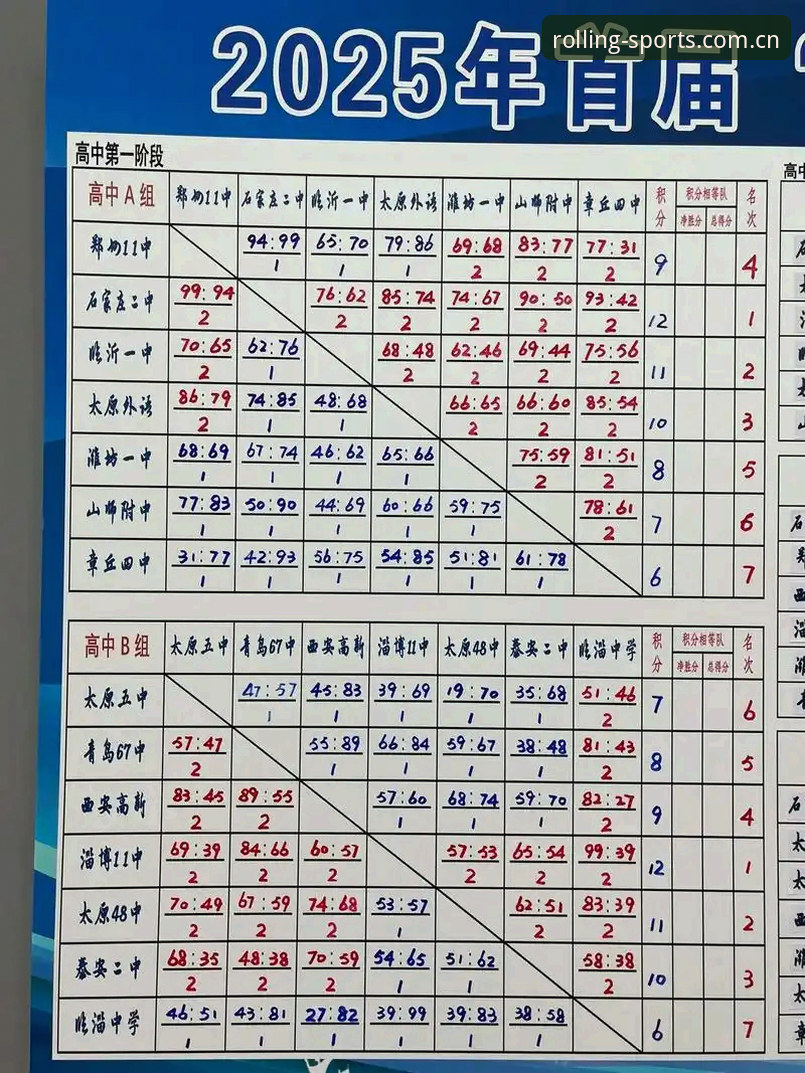 rolling-sports.com.cn
2025年首届
高中第一阶段
高中A组 郑州11中 石家庄二中 临沂一中 太原外语 潍坊一中 山师附中 章丘四中 积分 积分相等队 净胜分 总得分 名次
郑州11中 94:99 1 65:70 1 79:86 1 69:68 2 83:77 2 77:31 2 9 4
石家庄二中 99:94 2 76:62 2 85:74 2 74:67 2 90:50 2 93:42 2 12 1
临沂一中 70:65 2 62:76 1 68:48 2 62:46 2 69:44 2 75:56 2 11 2
太原外语 86:79 2 74:85 1 48:68 1 66:65 2 66:60 2 85:54 2 10 3
潍坊一中 68:69 1 67:74 1 46:62 1 65:66 1 75:59 2 81:51 2 8 5
山师附中 77:83 1 50:90 1 44:69 1 60:66 1 59:75 1 78:61 2 7 6
章丘四中 31:77 1 42:93 1 56:75 1 54:85 1 51:81 1 61:78 1 6 7
高中B组 太原五中 青岛67中 西安高新 淄博11中 太原48中 泰安二中 临淄中学 积分 积分相等队 净胜分 总得分 名次
太原五中 47:57 1 45:83 1 39:69 1 19:70 1 35:68 1 51:46 2 7 6
青岛67中 57:47 2 55:89 1 66:84 1 59:67 1 38:48 1 81:43 2 8 5
西安高新 83:45 2 89:55 2 57:60 1 68:74 1 59:70 1 82:27 2 9 4
淄博11中 69:39 2 84:66 2 60:57 2 57:53 2 65:54 2 99:39 2 12 1
太原48中 70:49 2 67:59 2 74:68 2 53:57 1 62:51 2 83:39 2 11 2
泰安二中 68:35 2 48:38 2 70:59 2 54:65 1 51:62 1 58:38 2 10 3
临淄中学 46:51 1 43:81 1 27:82 1 39:99 1 39:83 1 38:58 1 6 7
高中